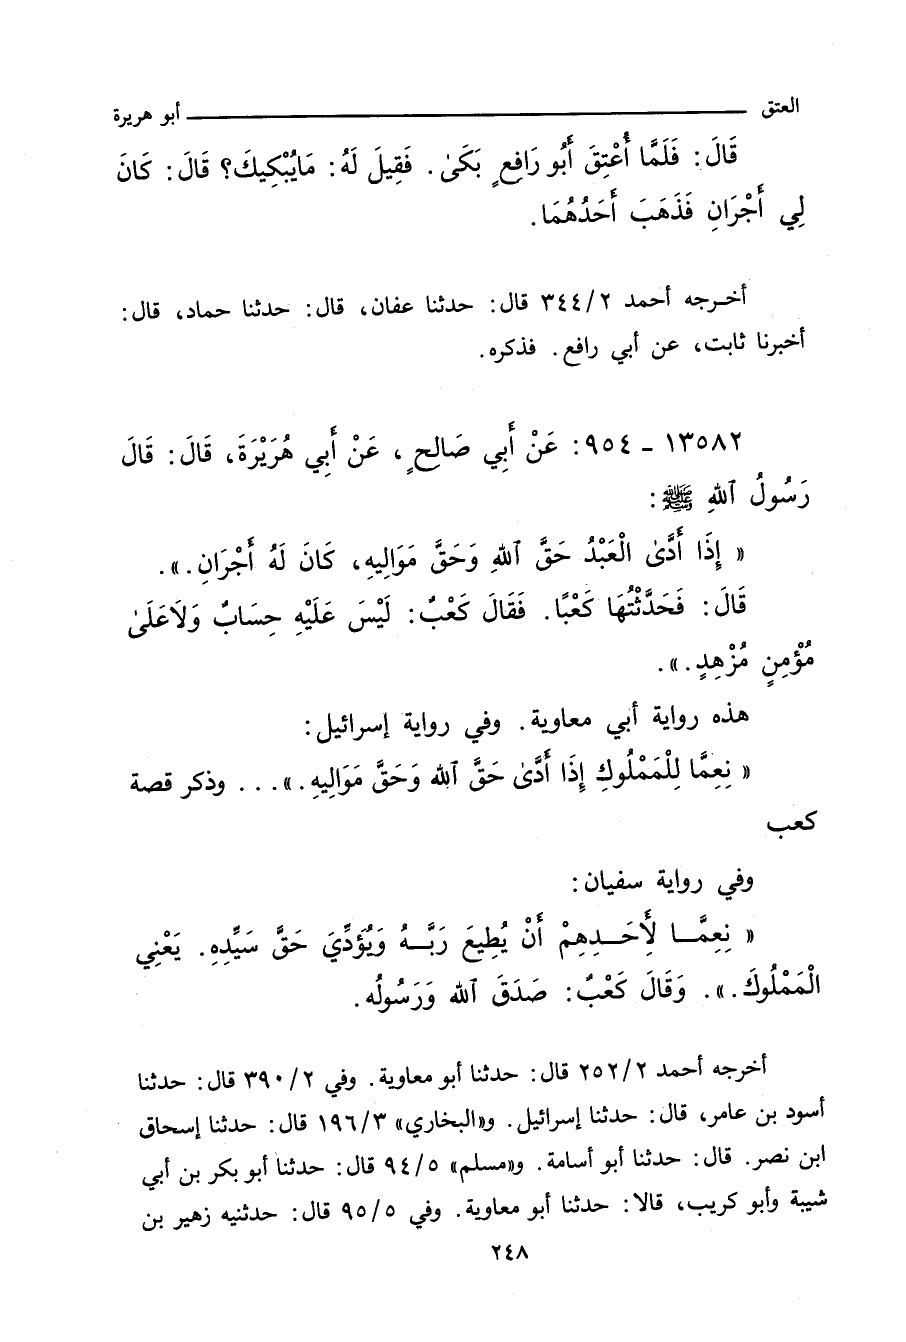 العتق أبو هريرة
قَالَ: فَلَمَّا أُعْتِقَ أَبُو رَافِعٍ بَكَىٰ. فَقِيلَ لَهُ: مَايُبْكِيكَ؟ قَالَ: كَانَ
لِي أَجْرَانِ فَذَهَبَ أَحَدُهُمَا.
أخرجه أحمد ٣٤٤/٢ قال: حدثنا عفان، قال: حدثنا حماد، قال:
أخبرنا ثابت، عن أبي رافع. فذكره.
١٣٥٨٢ - ٩٥٤: عَنْ أَبِي صَالِحٍ، عَنْ أَبِي هُرَيْرَةَ، قَالَ: قَالَ
رَسُولُ ٱللهِ ﷺ:
« إِذَا أَدَّىٰ الْعَبْدُ حَقَّ ٱللهِ وَحَقَّ مَوَالِيهِ، كَانَ لَهُ أَجْرَانِ.».
قَالَ: فَحَدَّثْتُهَا كَعْبًا. فَقَالَ كَعْبٌ: لَيْسَ عَلَيْهِ حِسَابٌ وَلَاعَلَىٰ
مُؤْمِنٍ مُزْهِدٍ.».
هذه رواية أبي معاوية. وفي رواية إسرائيل:
« نِعِمَّا لِلْمَمْلُوكِ إِذَا أَدَّىٰ حَقَّ ٱلله وَحَقَّ مَوَالِيهِ.»... وذكر قصة
كعب
وفي رواية سفيان:
« نِعِمَّـا لِأَحَـدِهِمْ أَنْ يُطِيعَ رَبَّـهُ وَيُؤَدِّيَ حَقَّ سَيِّدِهِ. يَعْنِي
الْمَمْلُوكَ.». وَقَالَ كَعْبٌ: صَدَقَ ٱلله وَرَسُولُه.
أخرجه أحمد ٢٥٢/٢ قال: حدثنا أبو معاوية. وفي ٣٩٠/٢ قال: حدثنا
أسود بن عامر، قال: حدثنا إسرائيل. و«البخاري» ١٩٦/٣ قال: حدثنا إسحاق
ابن نصر. قال: حدثنا أبو أسامة. و«مسلم» ٩٤/٥ قال: حدثنا أبو بكر بن أبي
شيبة وأبو كريب، قالا: حدثنا أبو معاوية. وفي ٩٥/٥ قال: حدثنيه زهير بن
٢٤٨